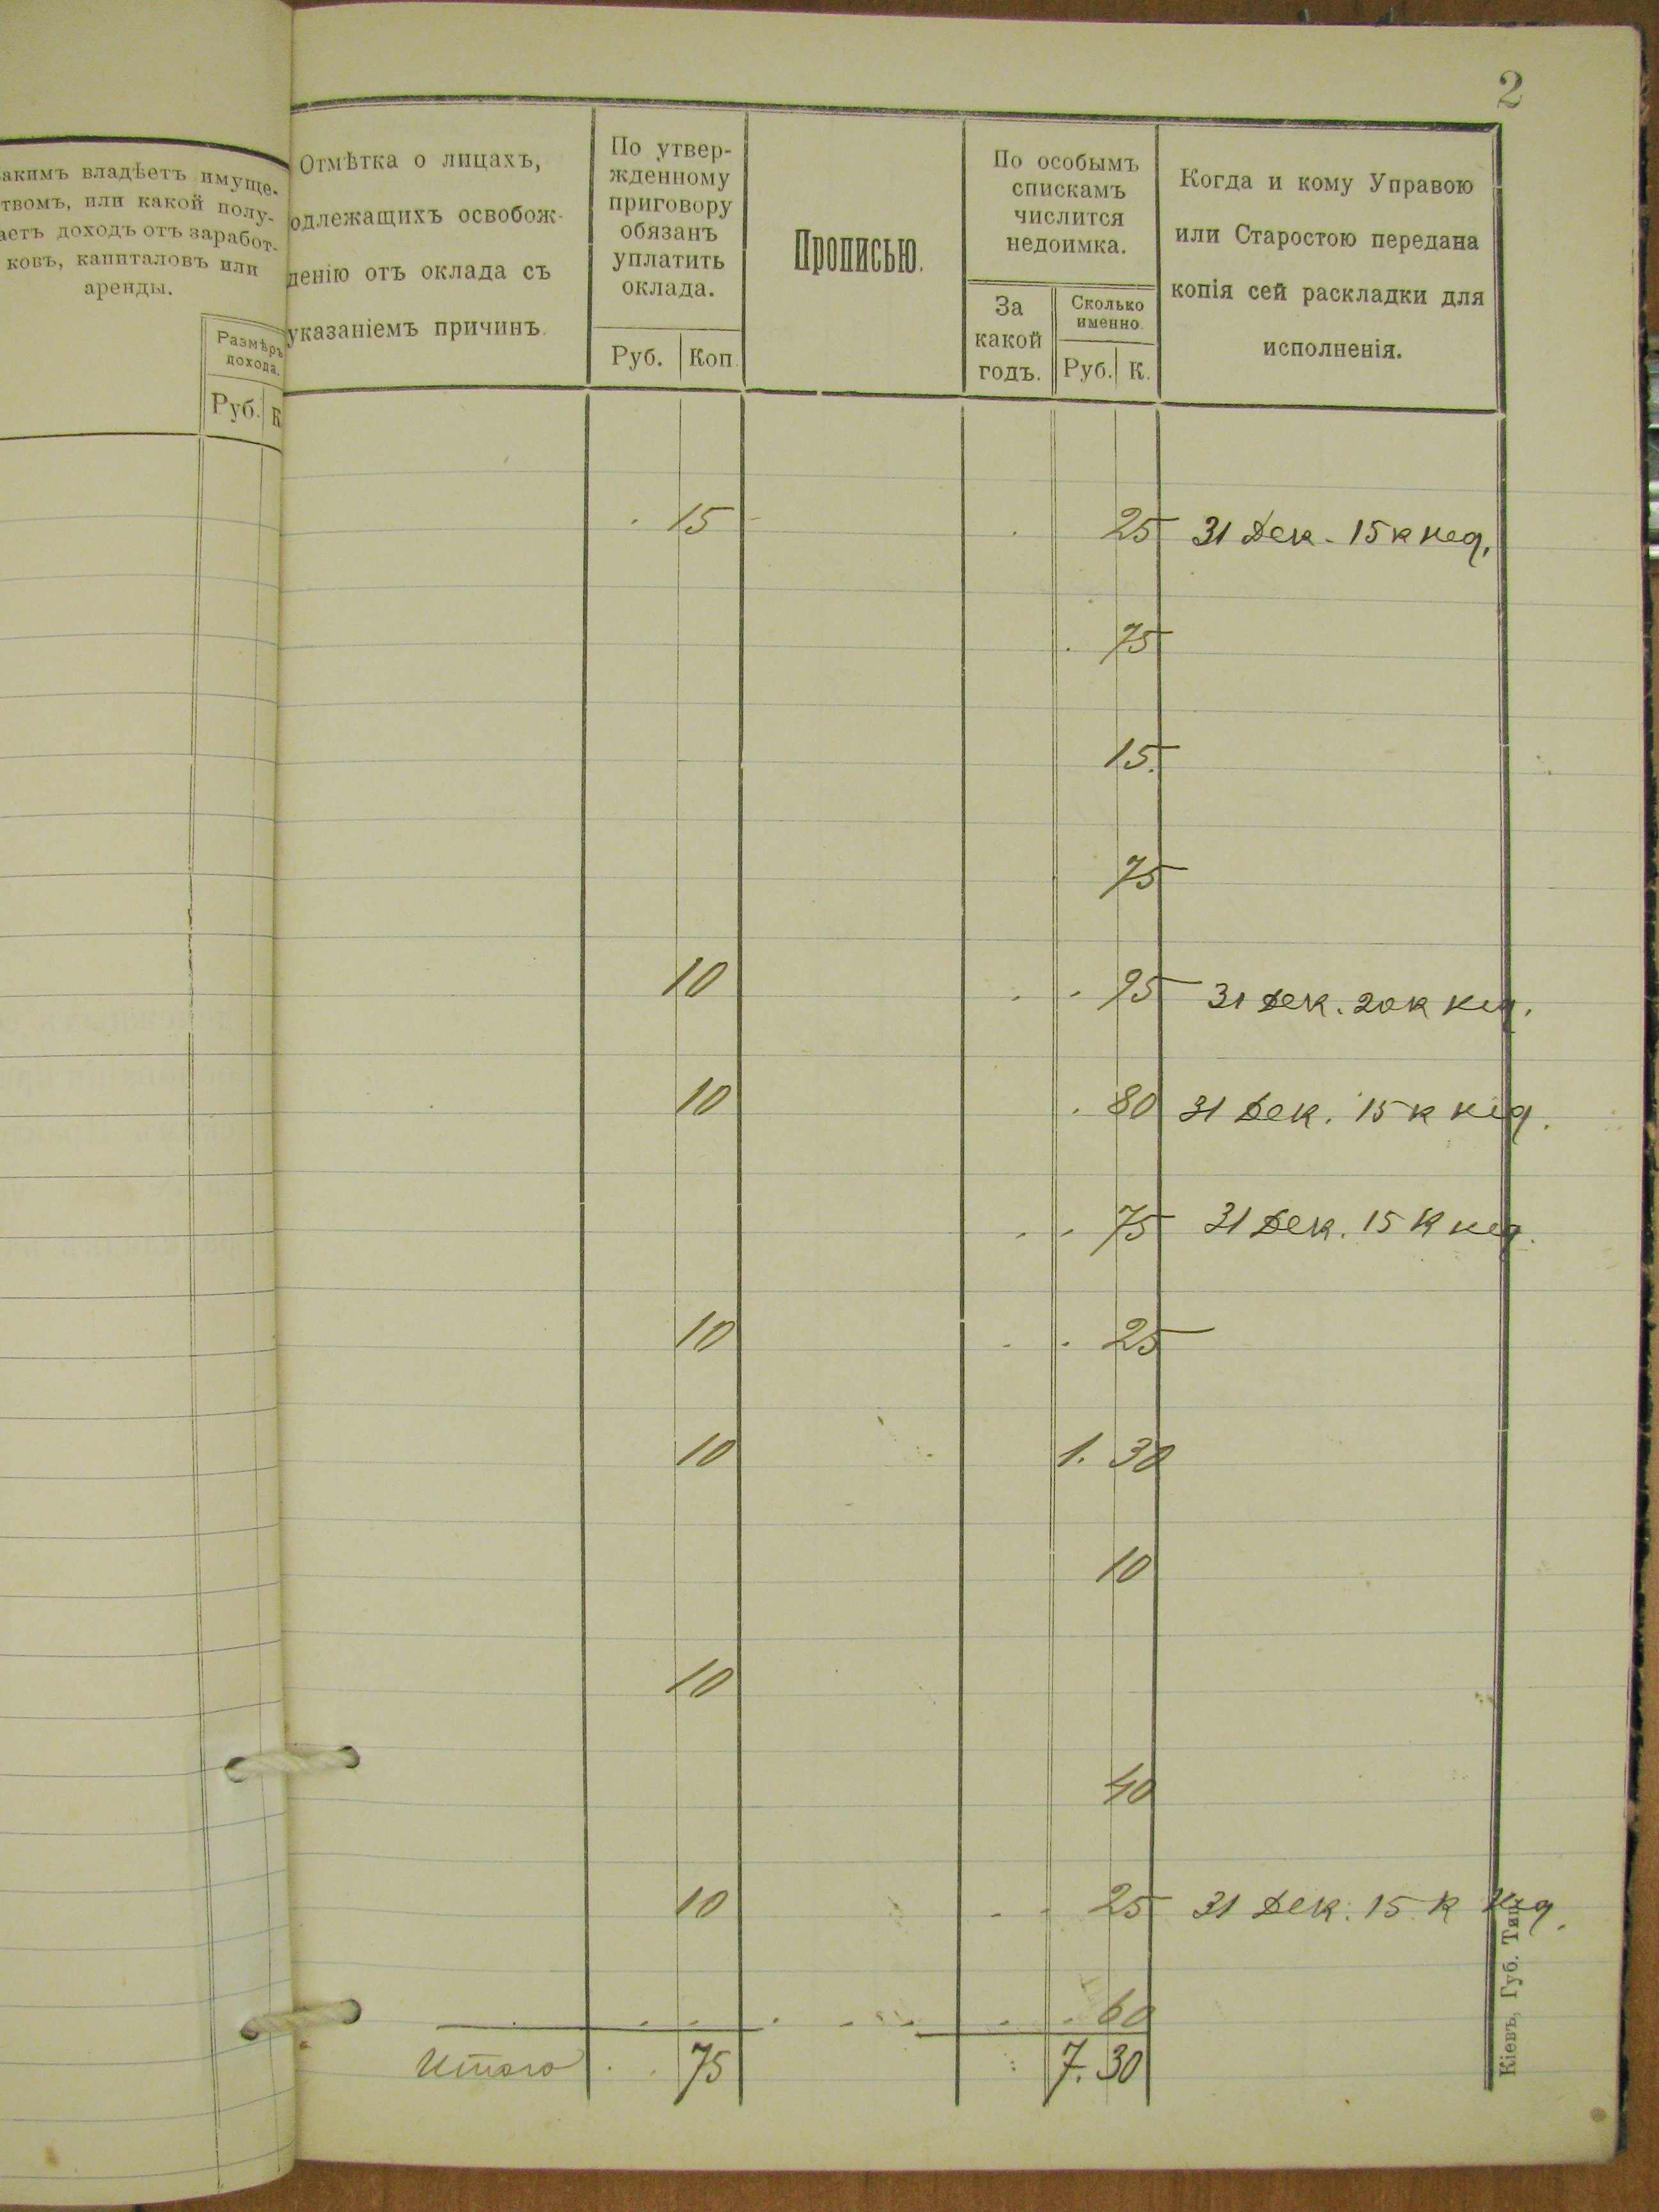 2
акимъ владѣетъ имуще-
твомъ, или какой полу-
аетъ доходъ отъ заработ-
ковъ, капиталовъ или
аренды.
Размѣръ
дохода.
Руб. К
Отмѣтка о лицахъ,
одлежащихъ освобож-
денію отъ оклада съ
указаніемъ причинъ.
По утвер-
жденному
приговору
обязанъ
уплатить
оклада.
Руб. Коп.
Прописью.
По особымъ
спискамъ
числится
недоимка.
За
какой
годъ.
Сколько
именно.
Руб. К.
Когда и кому Управою
или Старостою передана
копія сей раскладки для
исполненія.
15 25 31 Дек. 15 к нед.
75
15.
75
10 95 31 Дек. 20 к нед.
10 80 31 Дек. 15 к нед.
75 31 Дек. 15 к нед.
10 25
10 1. 30
10
10
40
10 25 31 Дек. 15 к нед.
60
Итого 75 7. 30
Кіевъ, Губ. Тип.